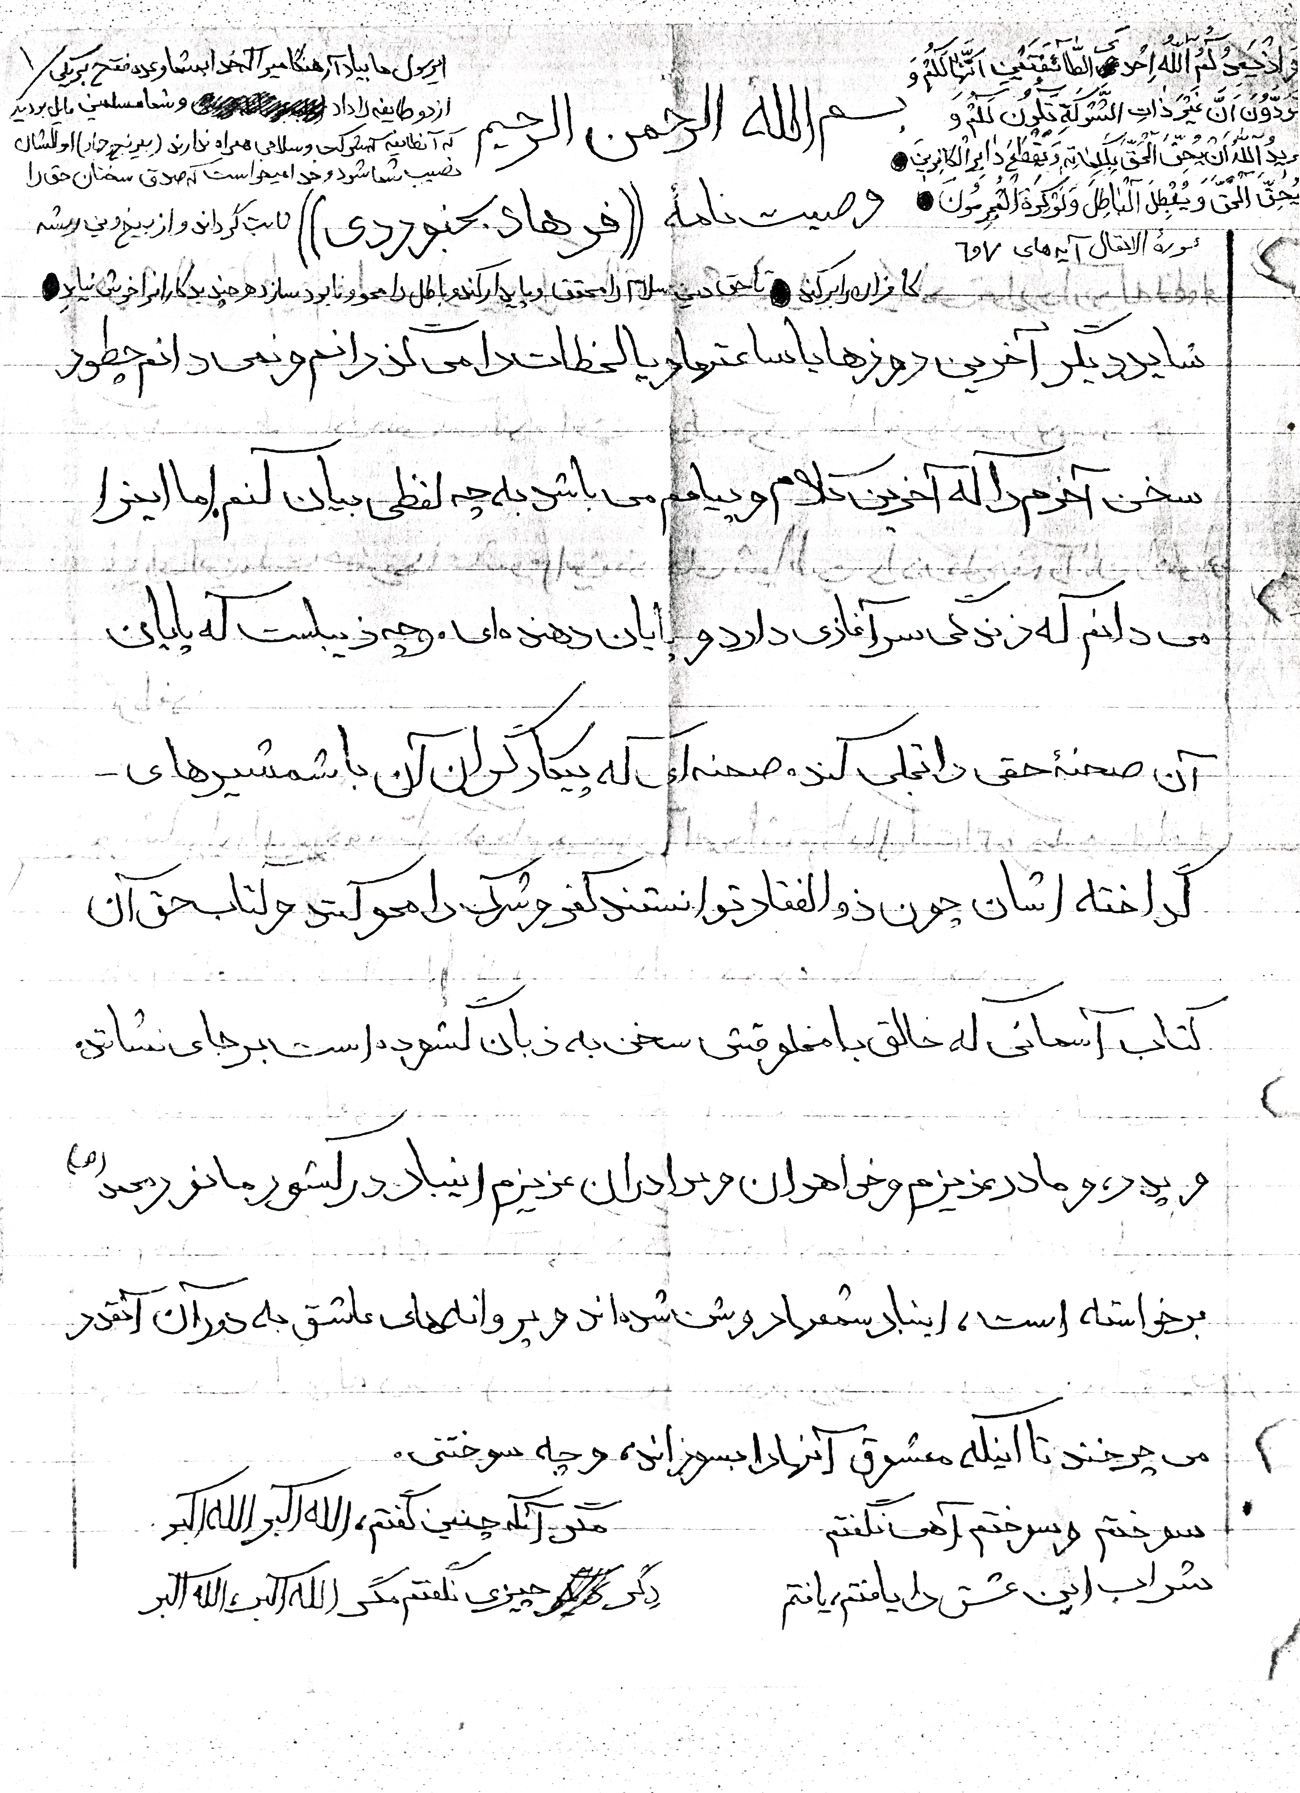 وَ اِذْ یَعِدُکُمُ اللّٰهُ اِحْدَی الطّائِفَتَیْنِ اَنَّها لَکُمْ وَ
تَوَدُّونَ اَنَّ غَیْرَ ذاتِ الشَّوْکَةِ تَکُونُ لَکُمْ وَ
یُریدُ اللّٰهُ اَنْ یُحِقَّ الْحَقَّ بِکَلِماتِهِ وَ یَقْطَعَ دابِرَ الْکافِرینَ
لِیُحِقَّ الْحَقَّ وَ یُبْطِلَ الْباطِلَ وَ لَوْ کَرِهَ الْمُجْرِمُونَ
سورهٔ الانفال آیه های ۷و۶
ای رسول ما بیاد آر هنگامیرا که خدا بشما وعده فتح بر یکی
از دو طائفه را داد و شما مسلمین مایل بودید
که آنطائفه که شوکت و سلاحی همراه ندارند اموالشان
نصیب شما شود و خدا میخواست که صدق سخنان حق را
ثابت گرداند و از بیخ و بن ریشه
کافران را برکند تا حق دین اسلام را محقق و پایدار کند و باطل را محو و نابود سازد هر چند بدکاران را خوش نیاید
بسم الله الرحمن الرحیم
وصیت نامهٔ ((فرهاد بجنوردی))
شاید دیگر آخرین روزها یا ساعتها و یا لحظات را می گذرانم و نمی دانم چطور
سخن آخرم را که آخرین کلام و پیامم می باشد به چه لفظی بیان کنم اما اینرا
می دانم که زندگی سرآغازی دارد و پایان دهنده ای. وچه زیباست که پایان
آن صحنهٔ حقی را تجلی کند. صحنه ای که پیکارگران آن با شمشیرهای -
گداخته اشان چون ذوالفقار توانستند کفر و شرک را محو کنند و کتاب حق آن
کتاب آسمانی که خالق با مخلوقش سخن به زبان گشوده است برجای نشاندند.
و پدر، و مادر عزیزم و خواهران و برادران عزیزم اینبار در کشور ما نور محمد (ص)
برخواسته است، اینبار شمعها روشن شده اند و پروانه های عاشق به دور آن آنقدر
می چرخند تا اینکه معشوق آنها را بسوزاند، و چه سوختنی.
سوختم و سوختم آهی نگفتم مگر آنکه چنین گفتم، الله اکبر الله اکبر
شراب این عشق را یافتم، یافتم دگر چیزی نگفتم مگر الله اکبر، الله اکبر